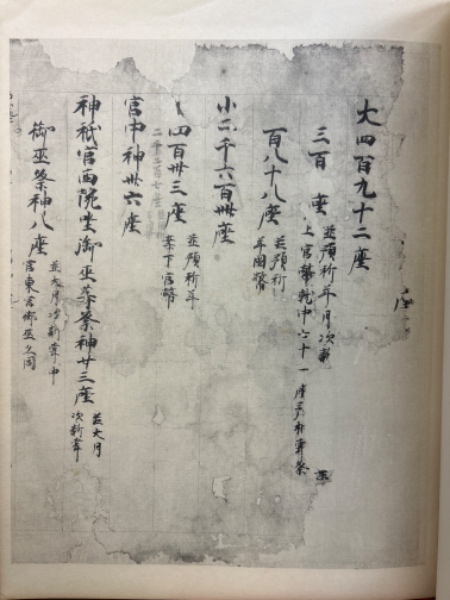 座
大四百九十二座
三百 座 並預祈年月次新
上官幣就中六十一座
百八十八座 並預祈
年国幣
小二千六百卌座
四百卅三座 並預祈年
案下官幣
宮中神卅六座
神祇官西院坐御巫等祭神廿三座 並大月
次新嘗
御巫祭神八座 並大月次新嘗中
宮東宮御巫又同